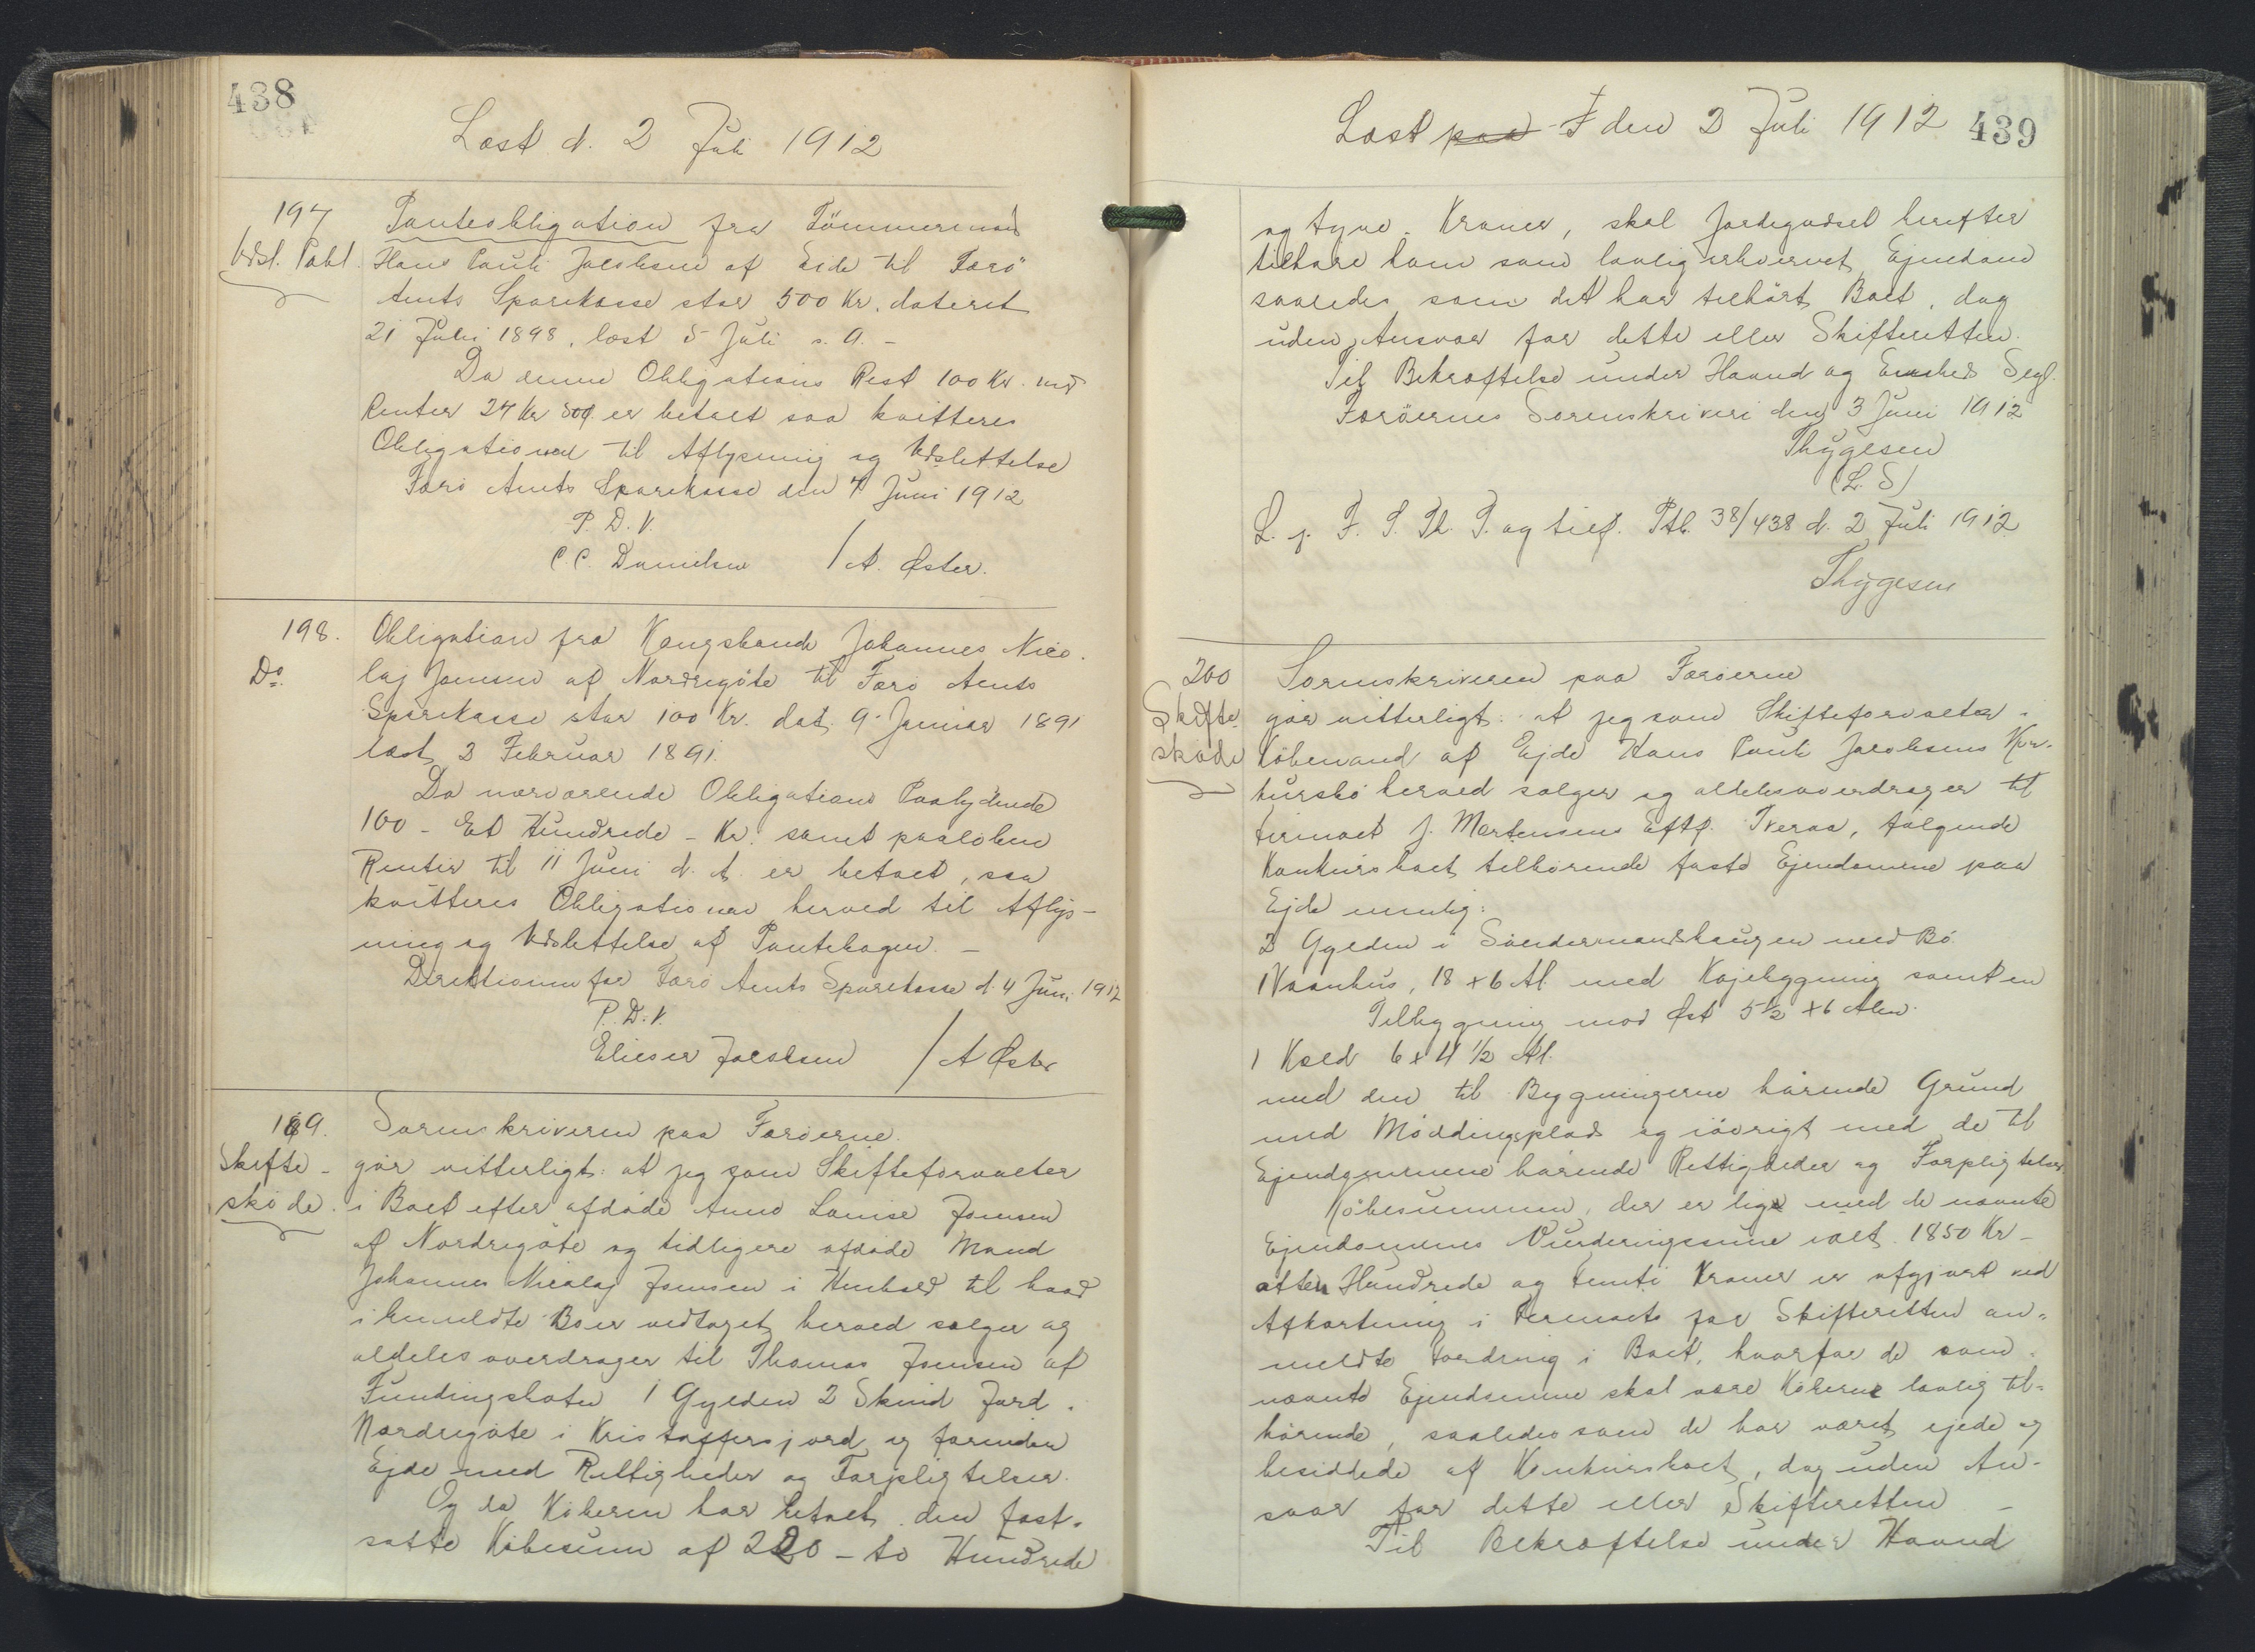 438
Læst d. 2 Juli 1912
197
Udsl. Pakl.
Panteobligation fra Tömmermand
Hans Pauli Jacobsen af Eide til Færö
Amts Sparekasse stor 500 Kr. dateret
21 Juli 1898, læst 5 Juli s. A. -
Da denne Obligations Rest 100 Kr. med
Renter 24 Kr 50ø er betalt saa kvitteres
Obligationen til Aflysning og Udslettelse
Færö Amts Sparekasse den 4 Juni 1912
P. D. V.
C. C. Danielsen / A. Øster.
198.
Do.
Obligation fra Kongsbonde Johannes Nico-
laj Joensen af Nordregöte til Færö Amts
Sparekasse stor 100 Kr. dat. 9. Januar 1891
læst 3 Februar 1891.
Da nærværende Obligations Paalydende
100 - Et Hundrede - Kr. samt paaløbne
Renter til 11 Juni d. A. er betalt, saa
kvitteres Obligationen herved til Aflys-
ning og Udslettelse af Pantebogen. -
Direktionen for Færö Amts Sparekasse d. 4 Juni 1912
P. D. V.
Elieser Jacobsen / A Øster
199.
Skifte-
sköde.
Sorenskriveren paa Færöerne.
gör vitterligt: at jeg som Skifteforvalter
i Boet efter afdöde Anna Lovise Joensen
af Nordregöte og tidligere afdöde Mand
Johannes Nicolaj Joensen i Henhold til hvad
i bemeldte Bo er vedtaget, herved sælger og
aldeles overdrager til Thomas Joensen af
Fundingsbotn 1 Gylden 2 Skind Jord.
Nordregöte i Kristoffersjord og forinden
Ejde med Rettigheder og Forpligtelser.
Og da Köberen har betalt den fast-
satte Köbesum af 220 - to Hundrede
Læst paa F den 2 Juli 1912
439
og tyve. Kroner, skal Jordegodset herefter
tilhöre ham som lovlig erhvervet Ejendom
saaledes som det har tilhört Boet, dog
uden Ansvar for dette eller Skifteretten.
Til Bekræftelse under Haand og Embeds Segl.
Færöernes Sorenskriveri den 3 Juni 1912
Thygesen
(L. S)
L. j. F. S. Th. P. og tilf. Ptb. 38/438 d. 2 Juli 1912
Thygesen
200
Skifte-
sköde
Sorenskriveren paa Færöerne
gör vitterligt: at jeg som Skifteforvalter.
Köbmand af Ejde Hans Pauli Jacobsens Kon-
kursbo herved sælger og aldeles overdrager til
Firmaet J. Mortensens Eftf. Tveraa, fölgende
Konkursboet tilhörende faste Ejendomme paa
Ejde nemlig:
2 Gylden i Söndermandshaugen med Bö.
1 Vaanhus, 18 x 6 Al. med Köjebygning samt en
Tilbygning mod Øst 5½ x 6 Alen.
1 Kjeld 6 x 4 ½ Al.
med den til Bygningerne hörende Grund
med Möddingsplads og iövrigt med de til
Ejendommene hörende Rettigheder og Forpligtelser.
Köbesummen, der er lige med de nævnte
Ejendommes Vurderingssum ialt. 1850 Kr -
atten Hundrede og femti Kroner er afgjort ved
Afkortning i Firmaets for Skifteretten an-
meldte Fordring i Boet, hvorfor de som-
nævnte Ejendomme skal være Köberne lovlig til-
hörende, saaledes som de har været ejede og
besiddede af Konkursboet, dog uden An-
svar for dette eller Skifteretten -
Til Bekræftelse under Haand